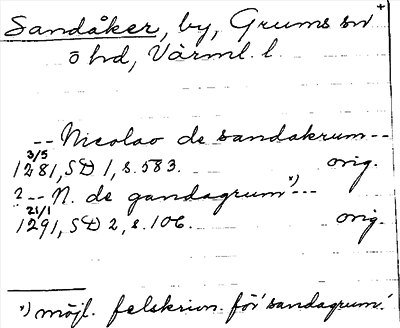 Sandåker, by, Grums sn +
ö hd, Värml. l.
-- Nicolao de sandakrum --
3/5
1281, SD 1, s. 583. orig.
? -- N. de gandagrum *) --
21/1
1291, SD 2, s. 106. orig.
*) möjl. felskrivn. för 'sandagrum'.